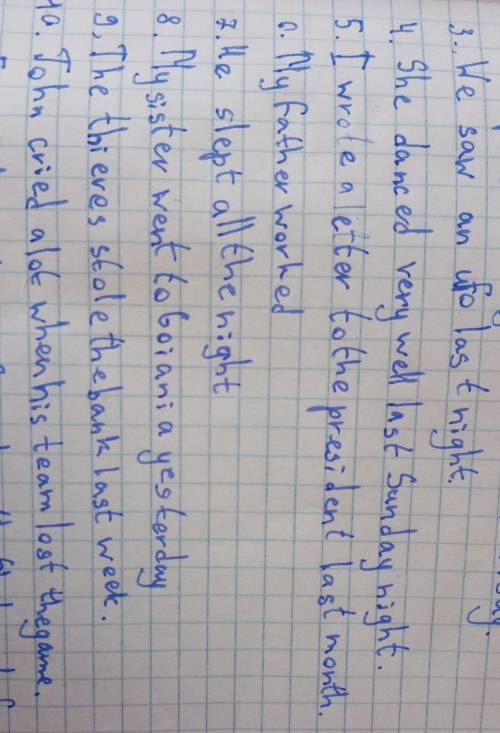 3. We saw an ufo last night.
4. She danced very well last Sunday night.
5. I wrote a letter to the president last month.
6. My father worked
7. He slept all the night
8. My sister went to Goiania yesterday
9, The thieves stole the bank last week.
10. John cried a lot when his team lost the game.